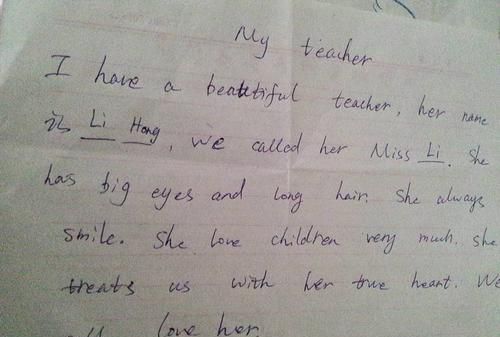 My teacher
I have a beautiful teacher, her name
is Li Hong, we called her Miss Li. She
has big eyes and long hair. She always
smile. She love children very much. she
treats us with her true heart. We
love her.